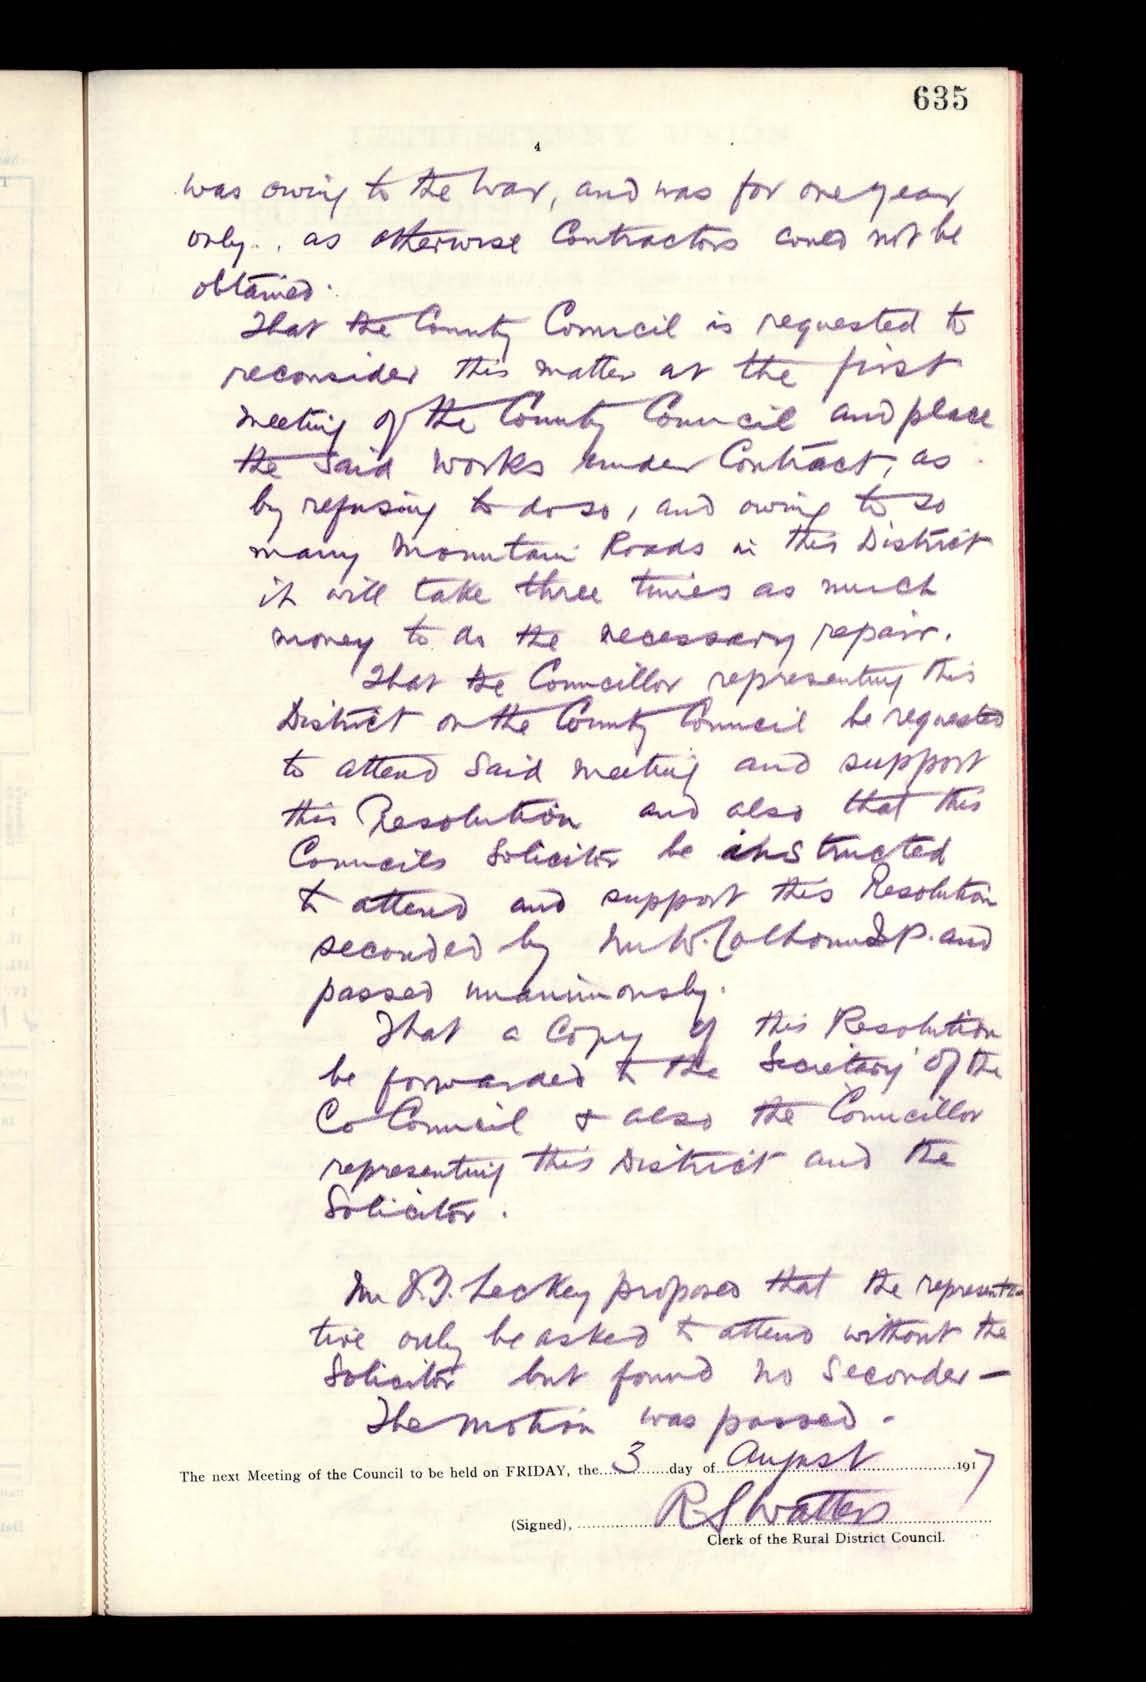 635
4
was owing to the War, and was for one year
only, as otherwise Contractors could not be
obtained.
That the County Council is requested to
reconsider this matter at the first
meeting of the County Council and place
the said works under Contract, as
by refusing to do so, and owing to so
many Mountain Roads in this District
it will take three times as much
money to do the necessary repair.
That the Councillor representing this
District on the County Council be requested
to attend said meeting and support
this Resolution and also that this
Councils Solicitor be instructed
to attend and support this Resolution
seconded by Mr W. Colhoun J.P. and
passed unanimously.
That a Copy of this Resolution
be forwarded to the Secretary of the
Co Council & also the Councillor
representing this District and the
Solicitor.
Mr Leckey proposed that the representa
tive only be asked to attend without the
Solicitor but found no Seconder —
The motion was passed -
The next Meeting of the Council to be held on FRIDAY, the 3 day of August 1917
(Signed), R S Watters
Clerk of the Rural District Council.